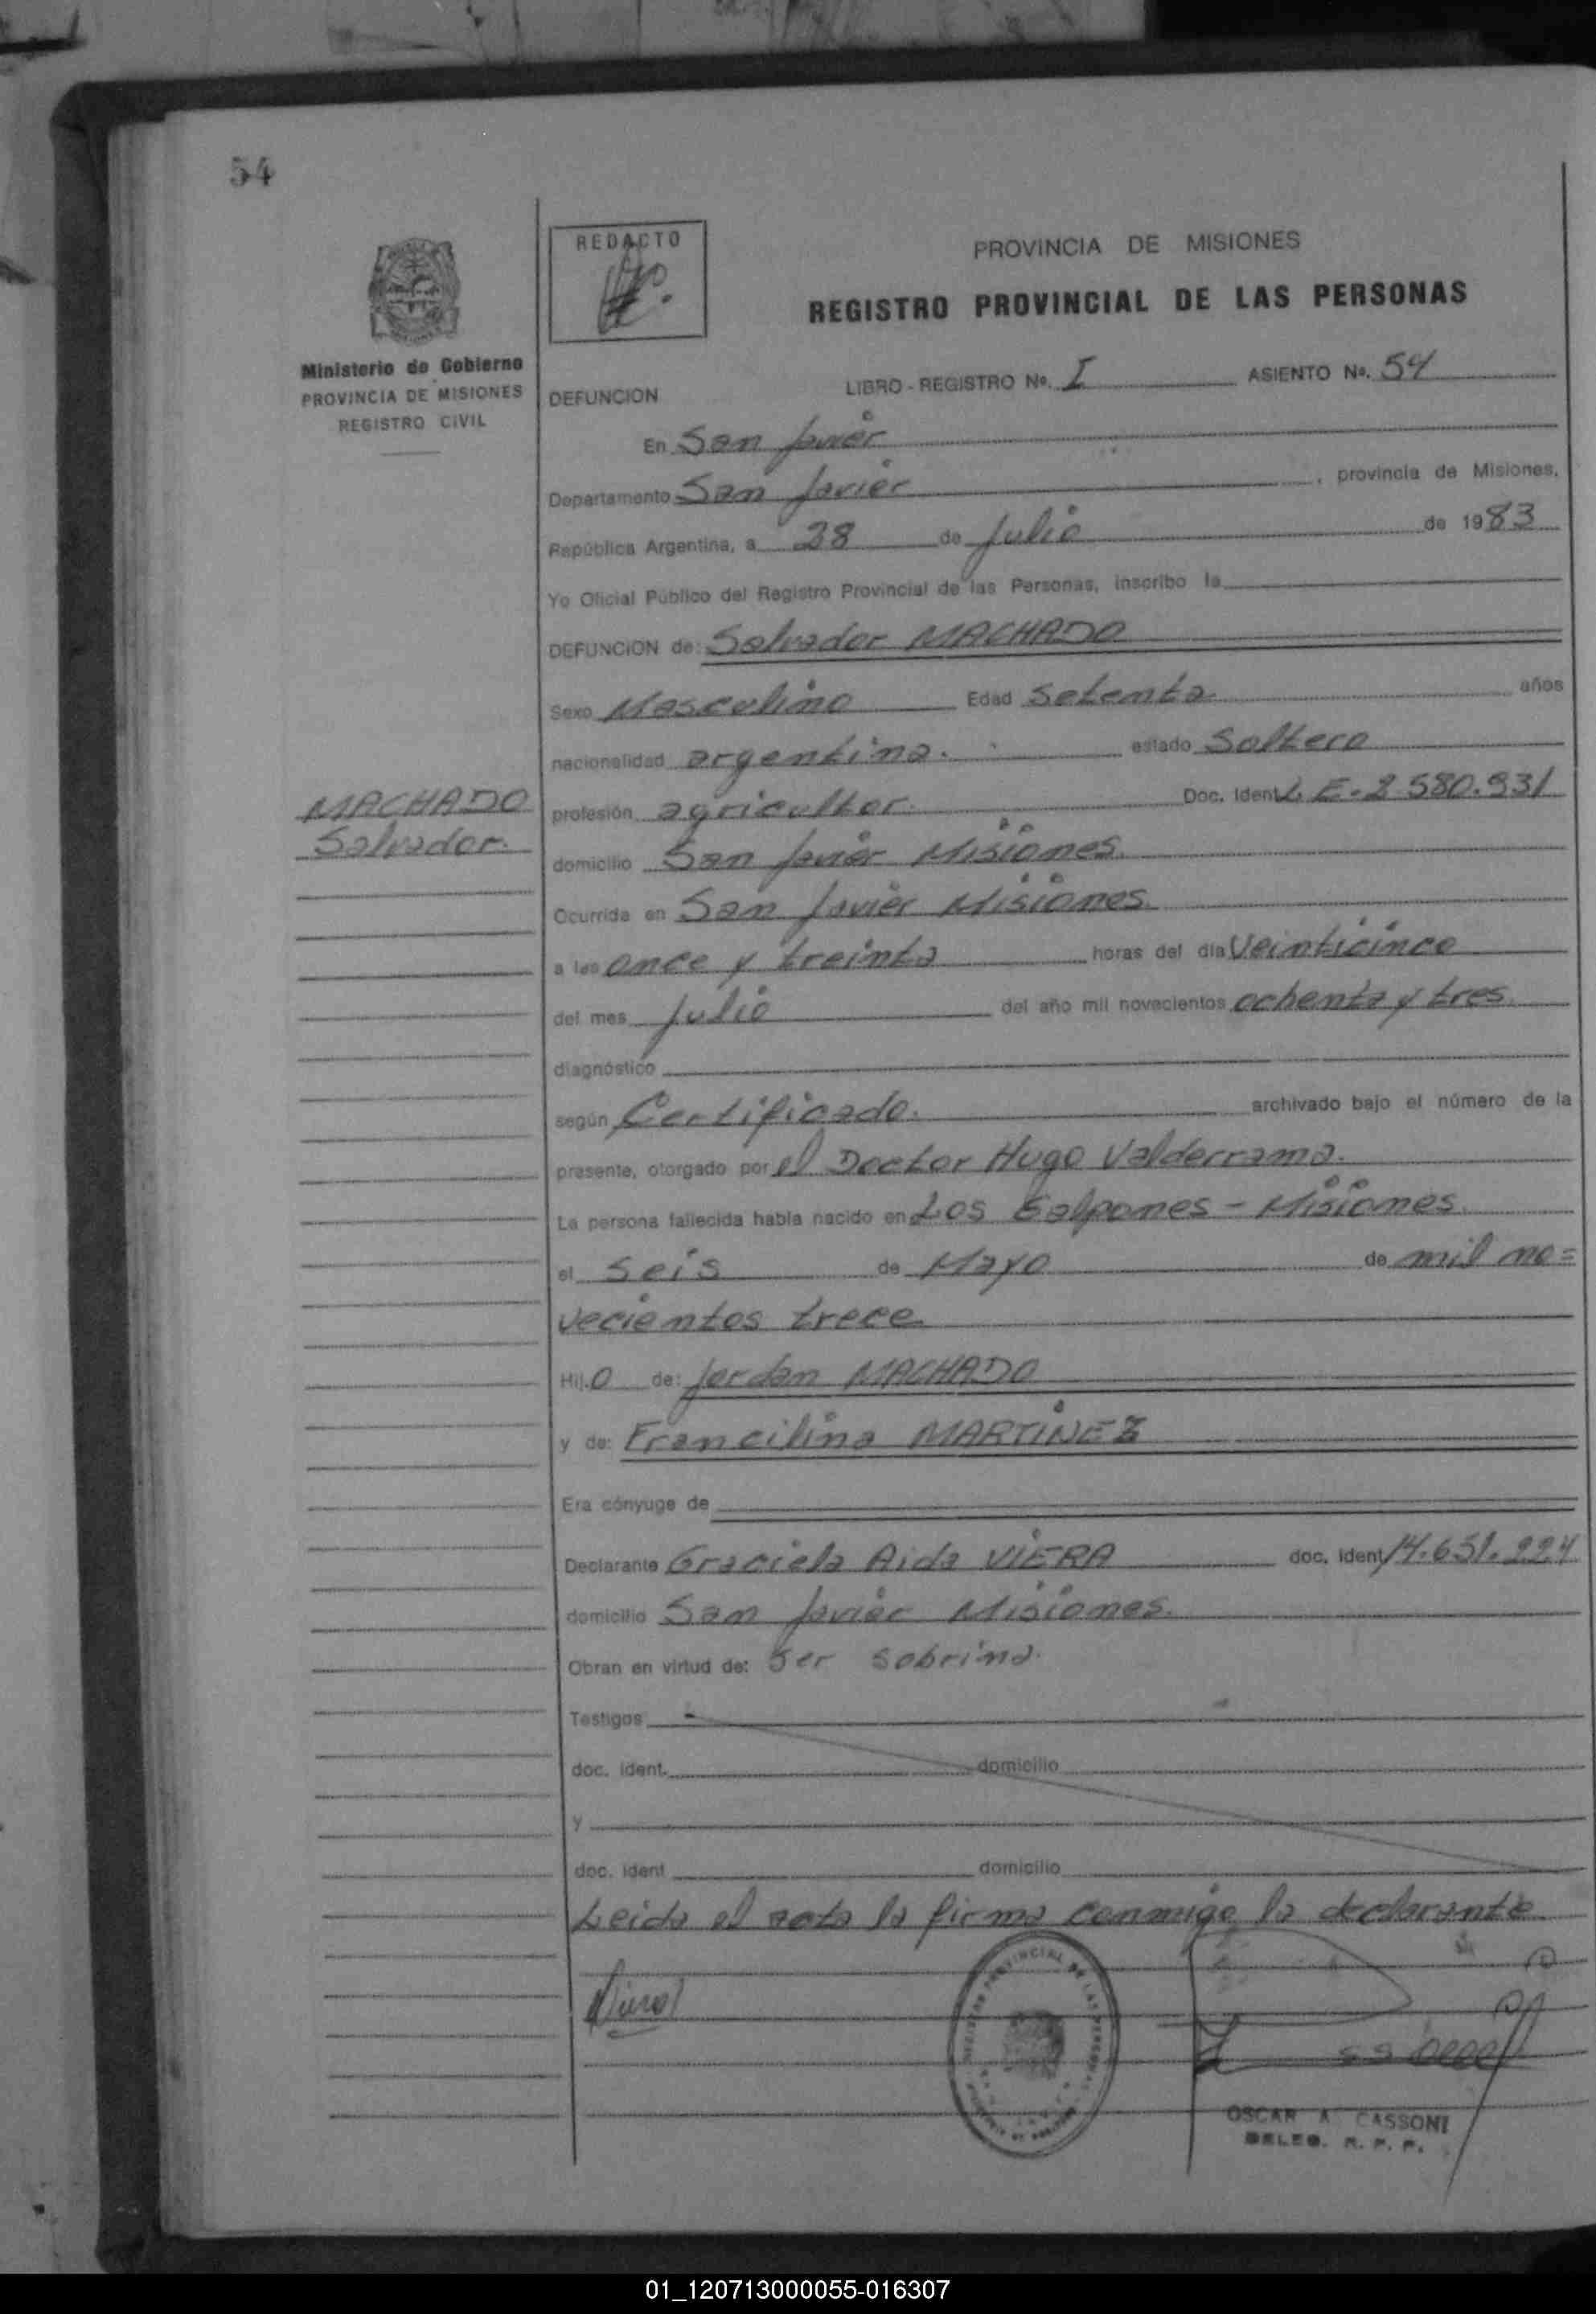 54
REDACTO
PROVINCIA DE MISIONES
REGISTRO PROVINCIAL DE LAS PERSONAS
Ministerio de Gobierno
PROVINCIA DE MISIONES
REGISTRO CIVIL
DEFUNCION
LIBRO - REGISTRO Nº. I ASIENTO Nº. 54
En San Javier
Departamento San Javier, provincia de Misiones,
República Argentina, a 28 de Julio de 1983
Yo Oficial Público del Registro Provincial de las Personas, inscribo la
DEFUNCION de: Salvador MACHADO
Sexo Masculino Edad Setenta años
nacionalidad argentina. estado Soltero
MACHADO
Salvador.
profesión agricultor. Doc. Ident L. E. 2.580.931
domicilio San Javier Misiones.
Ocurrida en San Javier Misiones.
a las once y treinta horas del día Veinticinco
del mes Julio del año mil novecientos ochenta y tres.
diagnóstico
según Certificado. archivado bajo el número de la
presente, otorgado por el Doctor Hugo Valderrama.
La persona fallecida había nacido en Los Galpones - Misiones.
el Seis de Mayo de mil no=
vecientos trece
Hij.o de: Jordan MACHADO
y de: Francilina MARTINEZ
Era cónyuge de
Declarante Graciela Aida VIERA doc. ident 14.651.224
domicilio San Javier Misiones.
Obran en virtud de: Ser Sobrina.
Testigos
doc. ident. domicilio
y
doc. ident domicilio
Leida el acta la firma conmigo la declarante
REGISTRO PROVINCIAL DE LAS PERSONAS
OSCAR A CASSONI
DELEG. R. P. P.
01_120713000055-016307